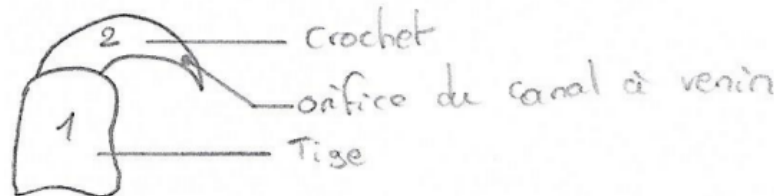 2
crochet
orifice du canal à venin
1
Tige